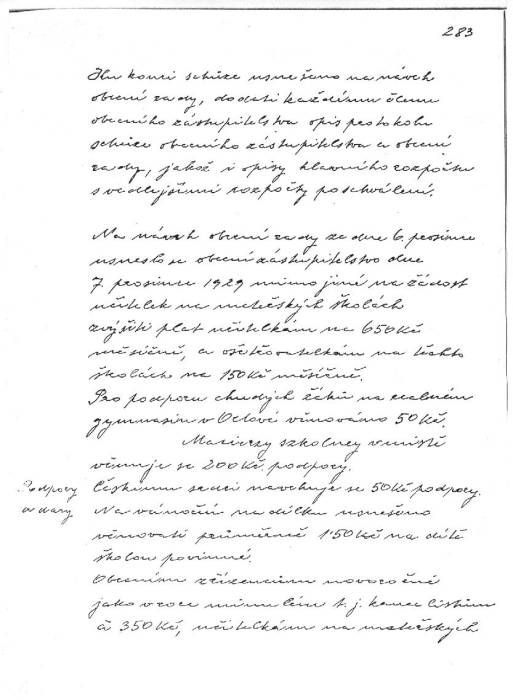 283
Ku konci schůze usneseno na návrh
obecní rady, dodati každému členu
obecního zástupitelstva opis protokolu
schůze obecního zástupitelstva a obecní
rady, jakož i opisy hlavního rozpočtu
s vedlejšími rozpočty po schválení.
Na návrh obecní rady ze dne 6. prosince
usneslo se obecní zástupitelstvo dne
7 prosince 1929 mimo jiné na žádost
učitelek na mateřských školách
zvýšiti plat učitelkám na 650 Kč
měsíčně, a ošetřovatelkám na těchto
školách na 150 Kč měsíčně.
Pro podporu chudých žáků na realném
gymnasiu v Orlové věnováno 50 Kč.
Macierzy szkolney v místě
věnuje se 200 Kč. podpory.
Podpory
a dary
Českému srdci navrhuje se 50 Kč podpory.
Na vánoční nadílku usneseno
věnovati průměrně 1.50 Kč na dítě
školou povinné.
Obecním zřízencům novoročné
jako v roce minulém t. j. kancelistům
à 350 Kč, učitelkám na mateřských